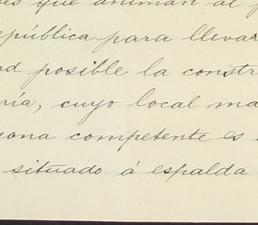 es que animan al p
epública para llevar
ad posible la constr
ría, cuyo local ma
sona competente es
situado á espalda